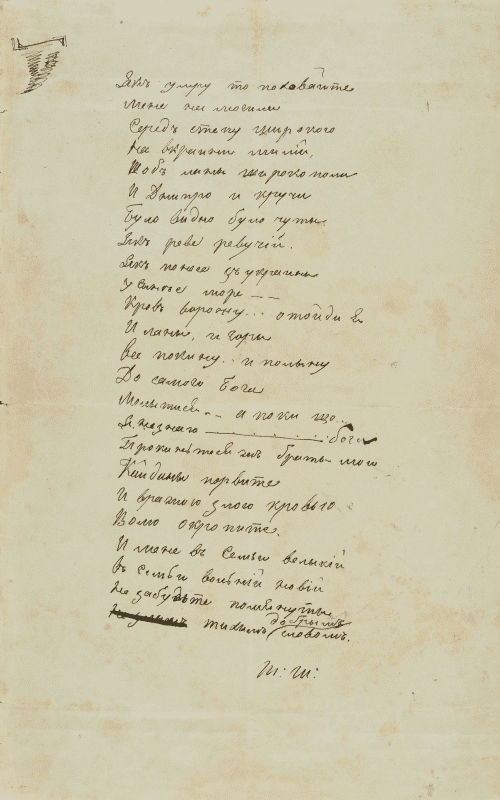 Якъ умру то поховайте
Мене на могили
Середъ степу широкого
На вкраини милій,
Щобъ ланы широкополи
И Днипро и кручи
Було видно було чуты
Якъ реве ревучій.
Якъ понесе зъ украины
У синье море --
Кровъ ворожу... отойди я
И ланы, и горы
Все покину.. и полыну
До самого Бога
Молытися.. а поки що..
Я незнаю бога
Кайданы порвите
И вражою злою кровью
Волю окропите.
И мене въ семьи велыкій
въ семьи вольній новій
Не забудьте помянуты
тихимъ добрымъ словомъ.
Т: Ш: